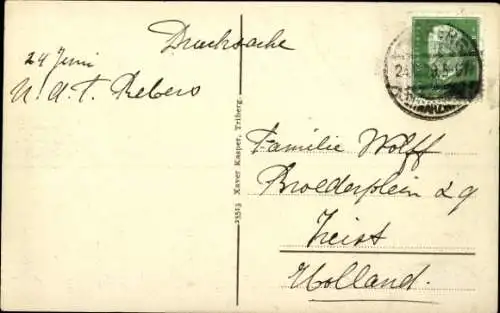 Drucksache
24 Juni
23513 Xaver Kasper, Triberg.
Familie Wolff
Broederplein 29
Zeist
Holland.